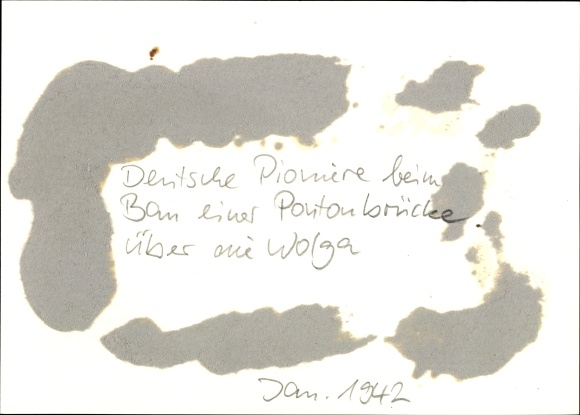 Deutsche Pioniere beim
Bau einer Pontonbrücke
über die Wolga
Jan. 1942